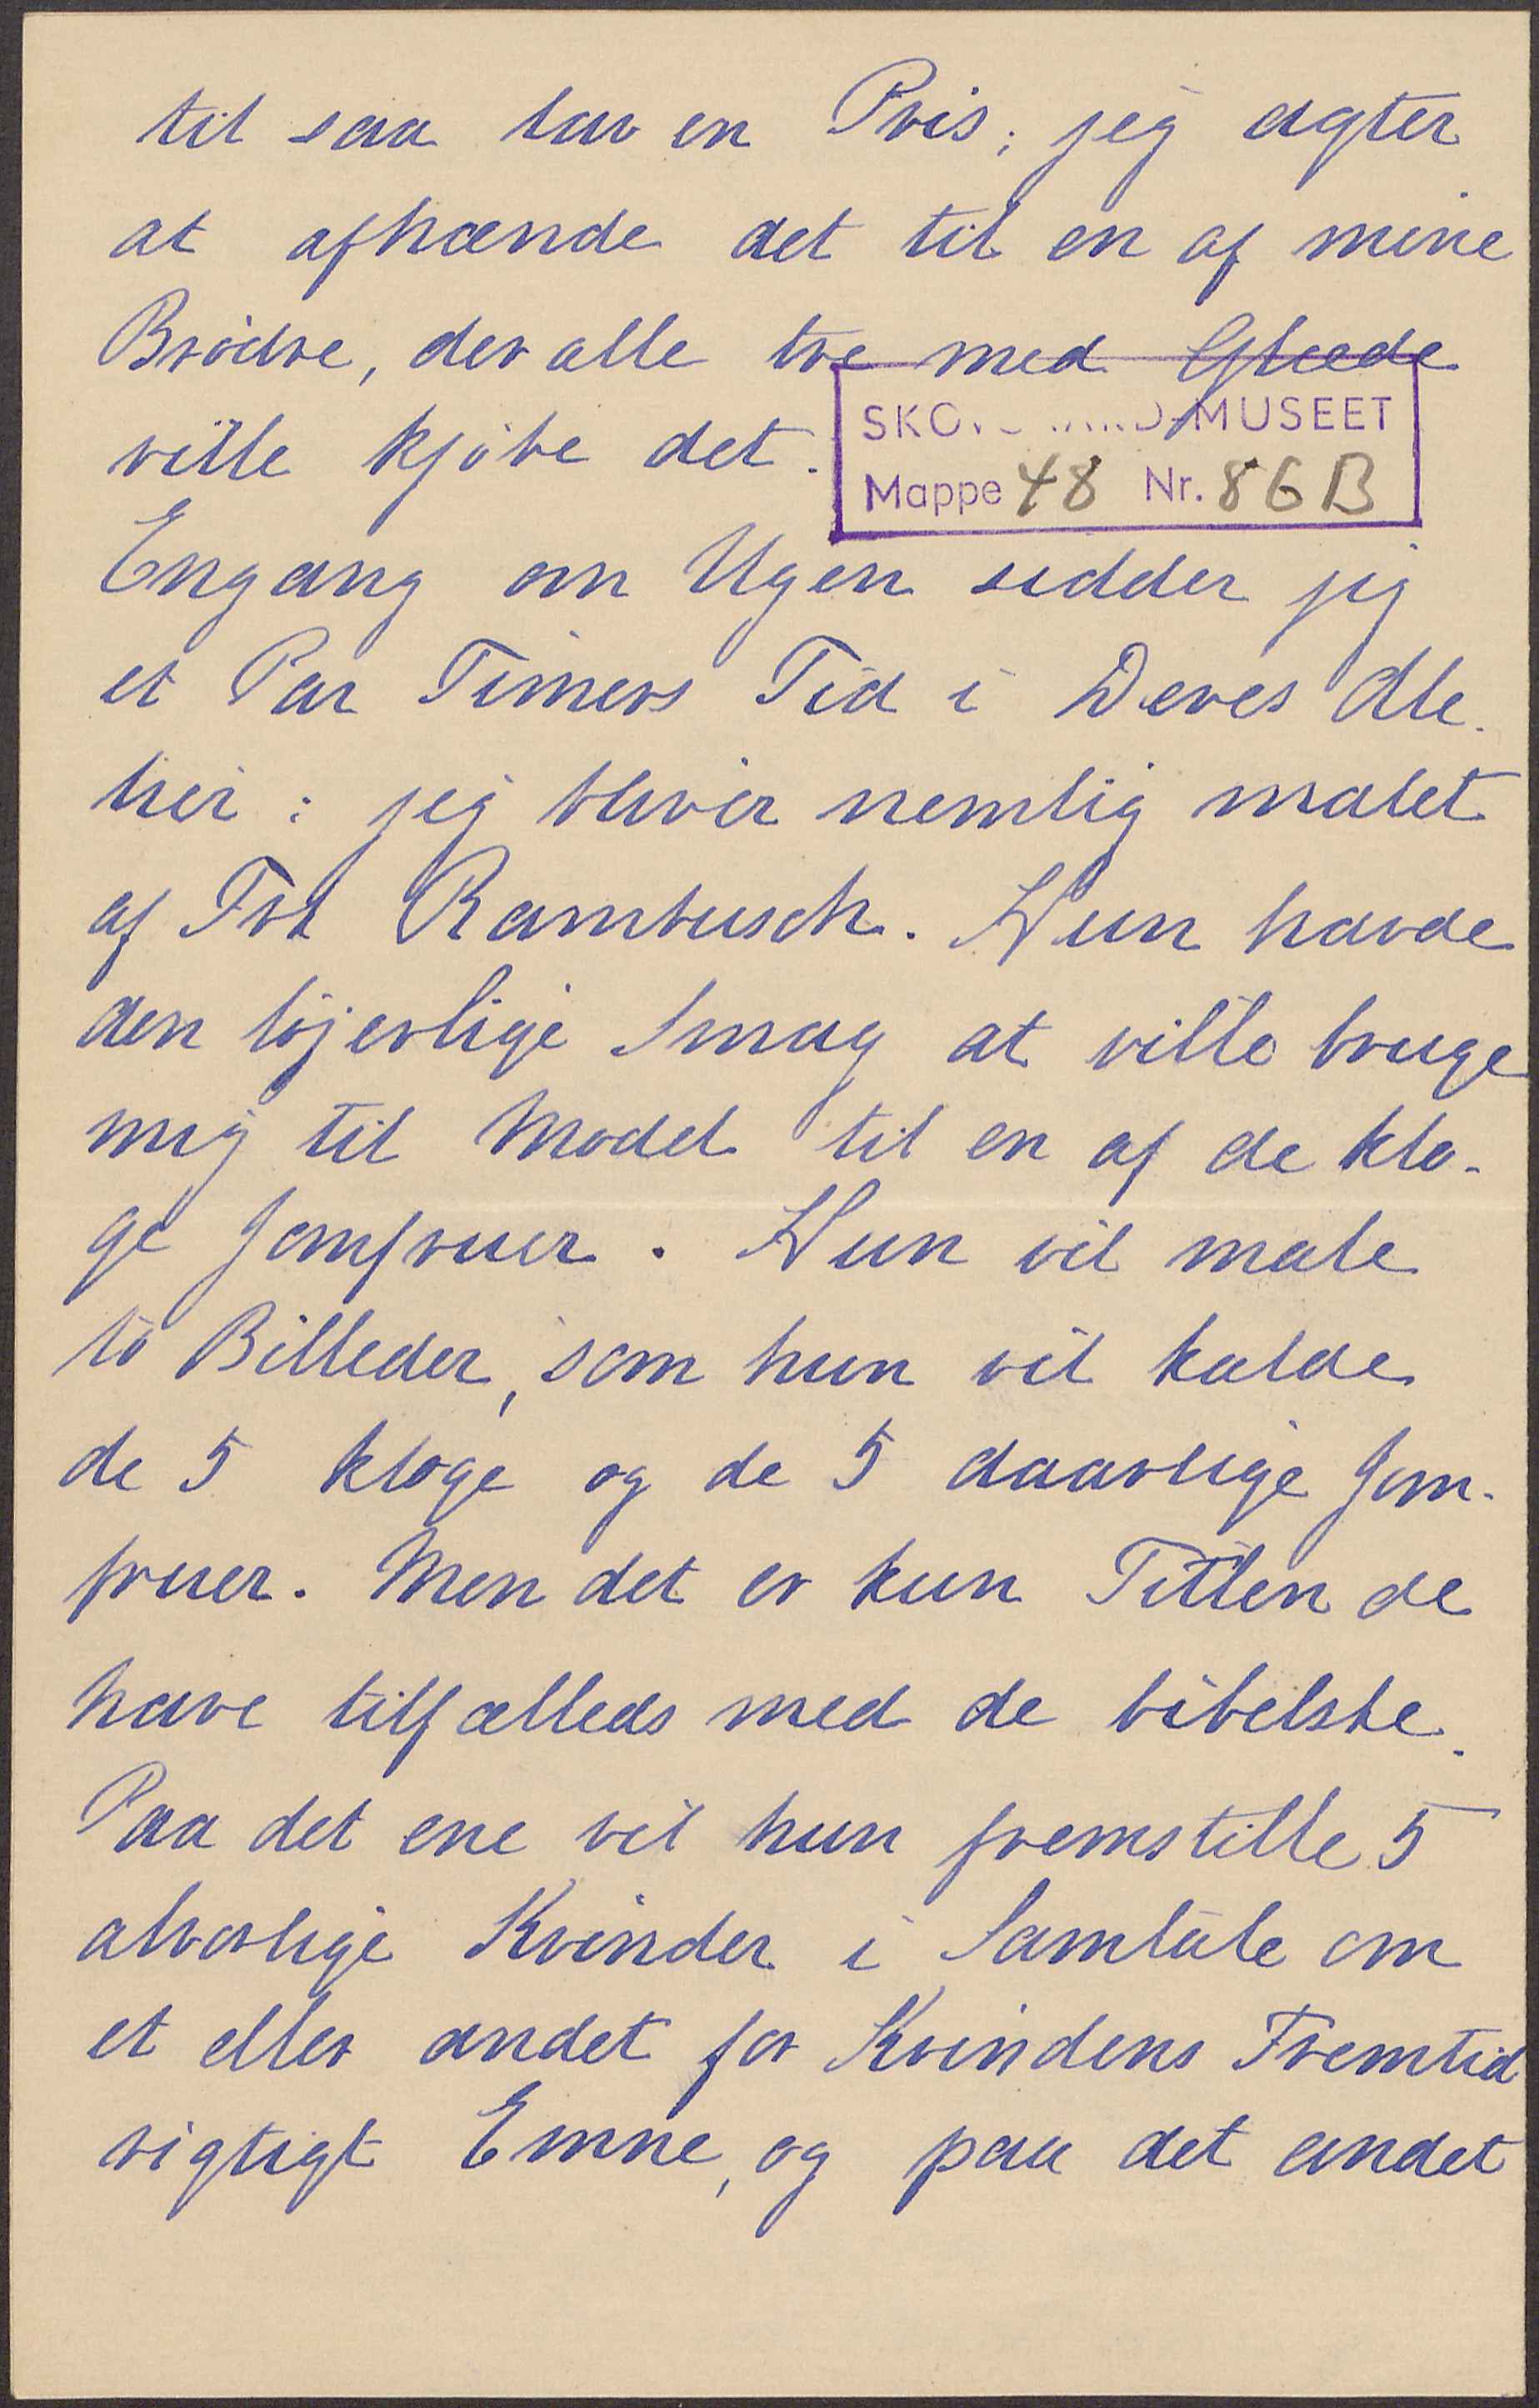 til saa lav en Pris; jeg agter
at afhænde det til en af mine
Brödre, der alle tre med Glæde
ville kjöbe det.
MUSEET
Mappe 48 Nr. 86B
Engang om Ugen sidder jeg
et Par Timers Tid i Deres Ate-
lier: jeg bliver nemlig malet
af Frk Rambusch. Hun havde
den löjerlige Smag at ville bruge
mig til Model til en af de klo-
ge Jomfruer. Hun vil male
to Billeder, som hun vil kalde
de 5 kloge og de 5 daarlige Jom-
fruer. Men det er kun Titlen de
have tilfælleds med de bibelske.
Paa det ene vil hun fremstille 5
alvorlige Kvinder i Samtale om
et eller andet for Kvindens Fremtid
vigtigt Emne, og paa det andet